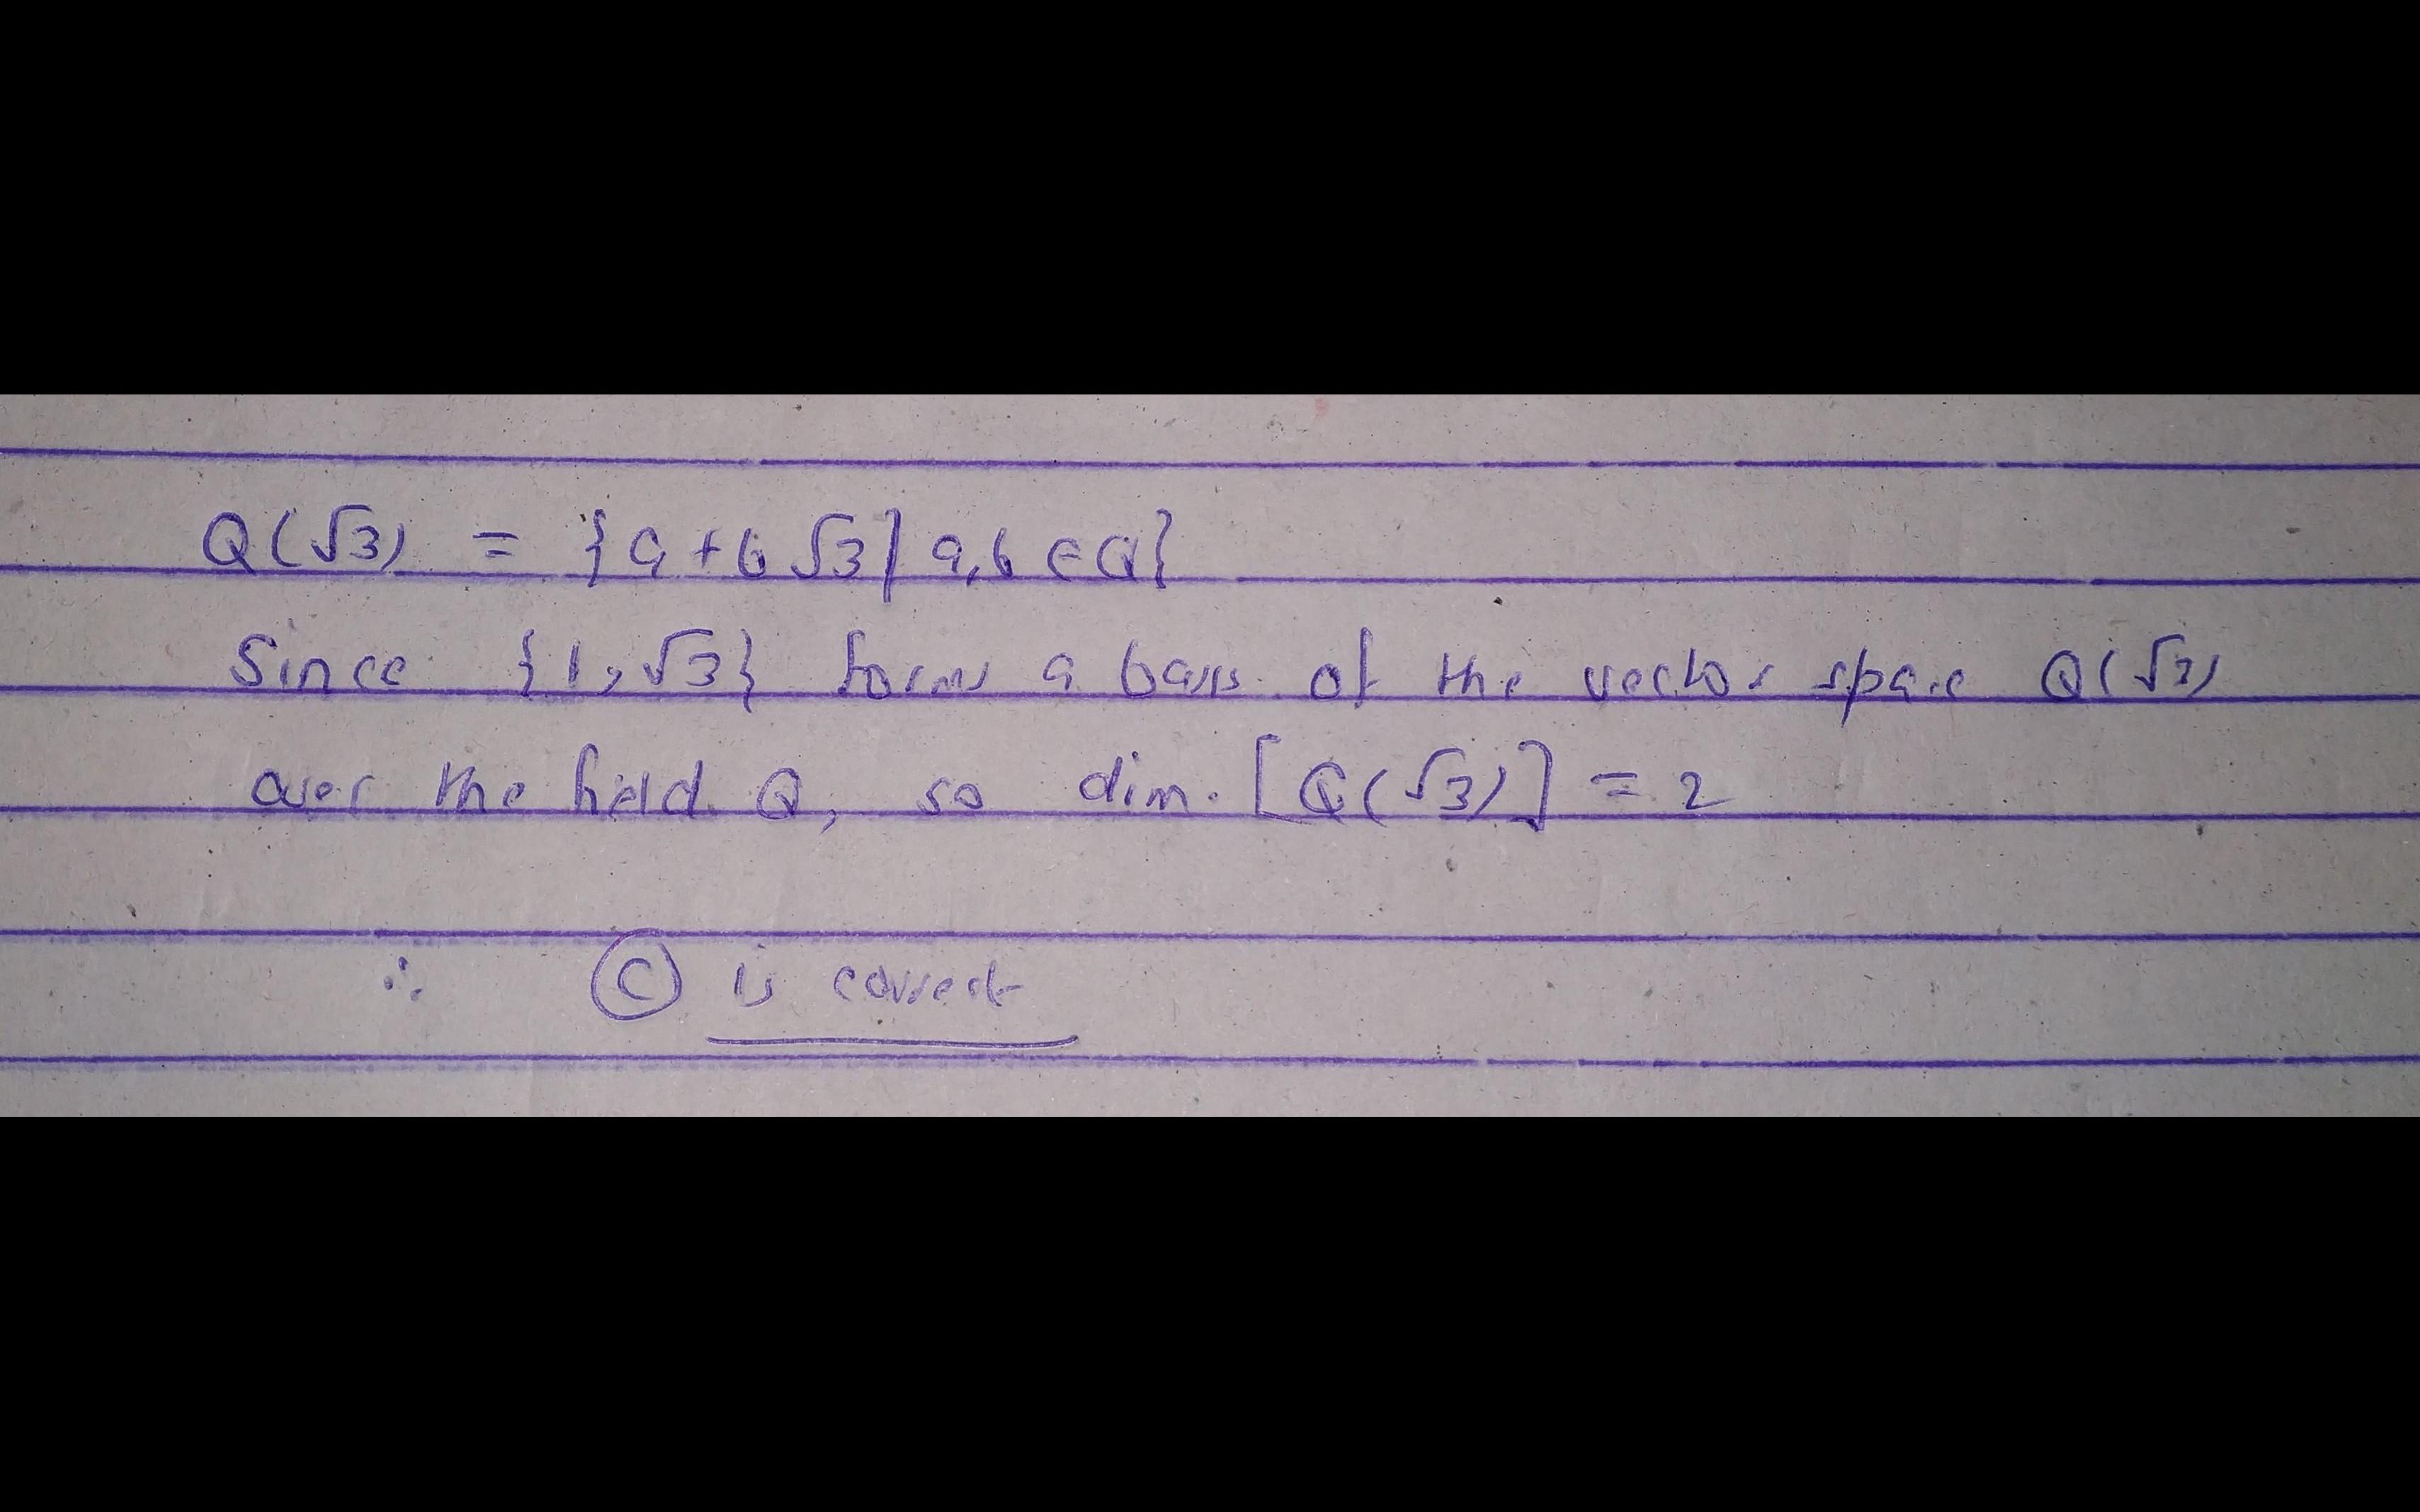 Q(√3) = {a+b√3 | a,b ∈ Q}
Since {1, √3} forms a basis of the vector space Q(√3)
over the field Q, so dim. [Q(√3)] = 2
∴ (C) is correct